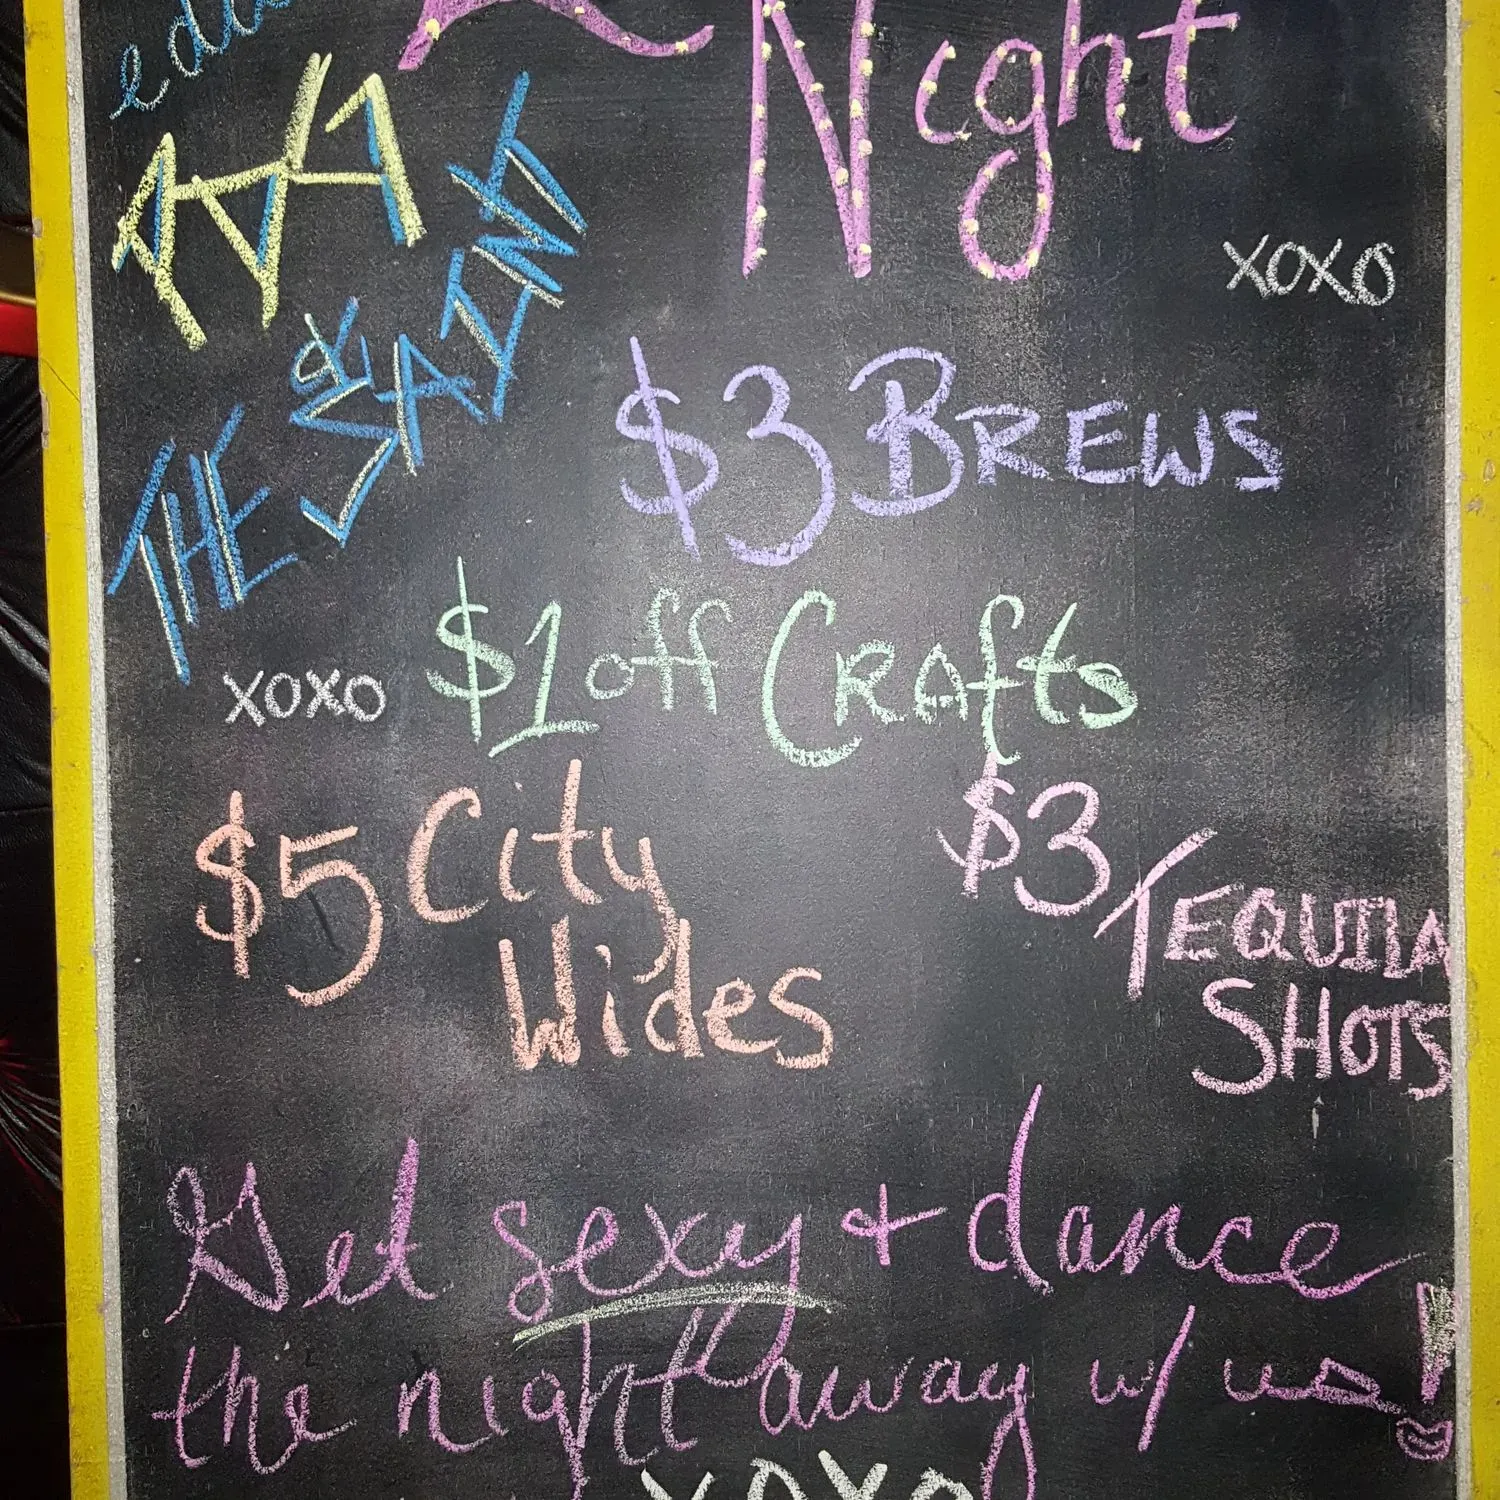 Night
XOXO
THE
SAINT
$3 BREWS
$1 off Crafts
XOXO
$5 City
Wides
$3 TEQUILA
SHOTS
Get sexy + dance
the night away w/ us!
XOXO